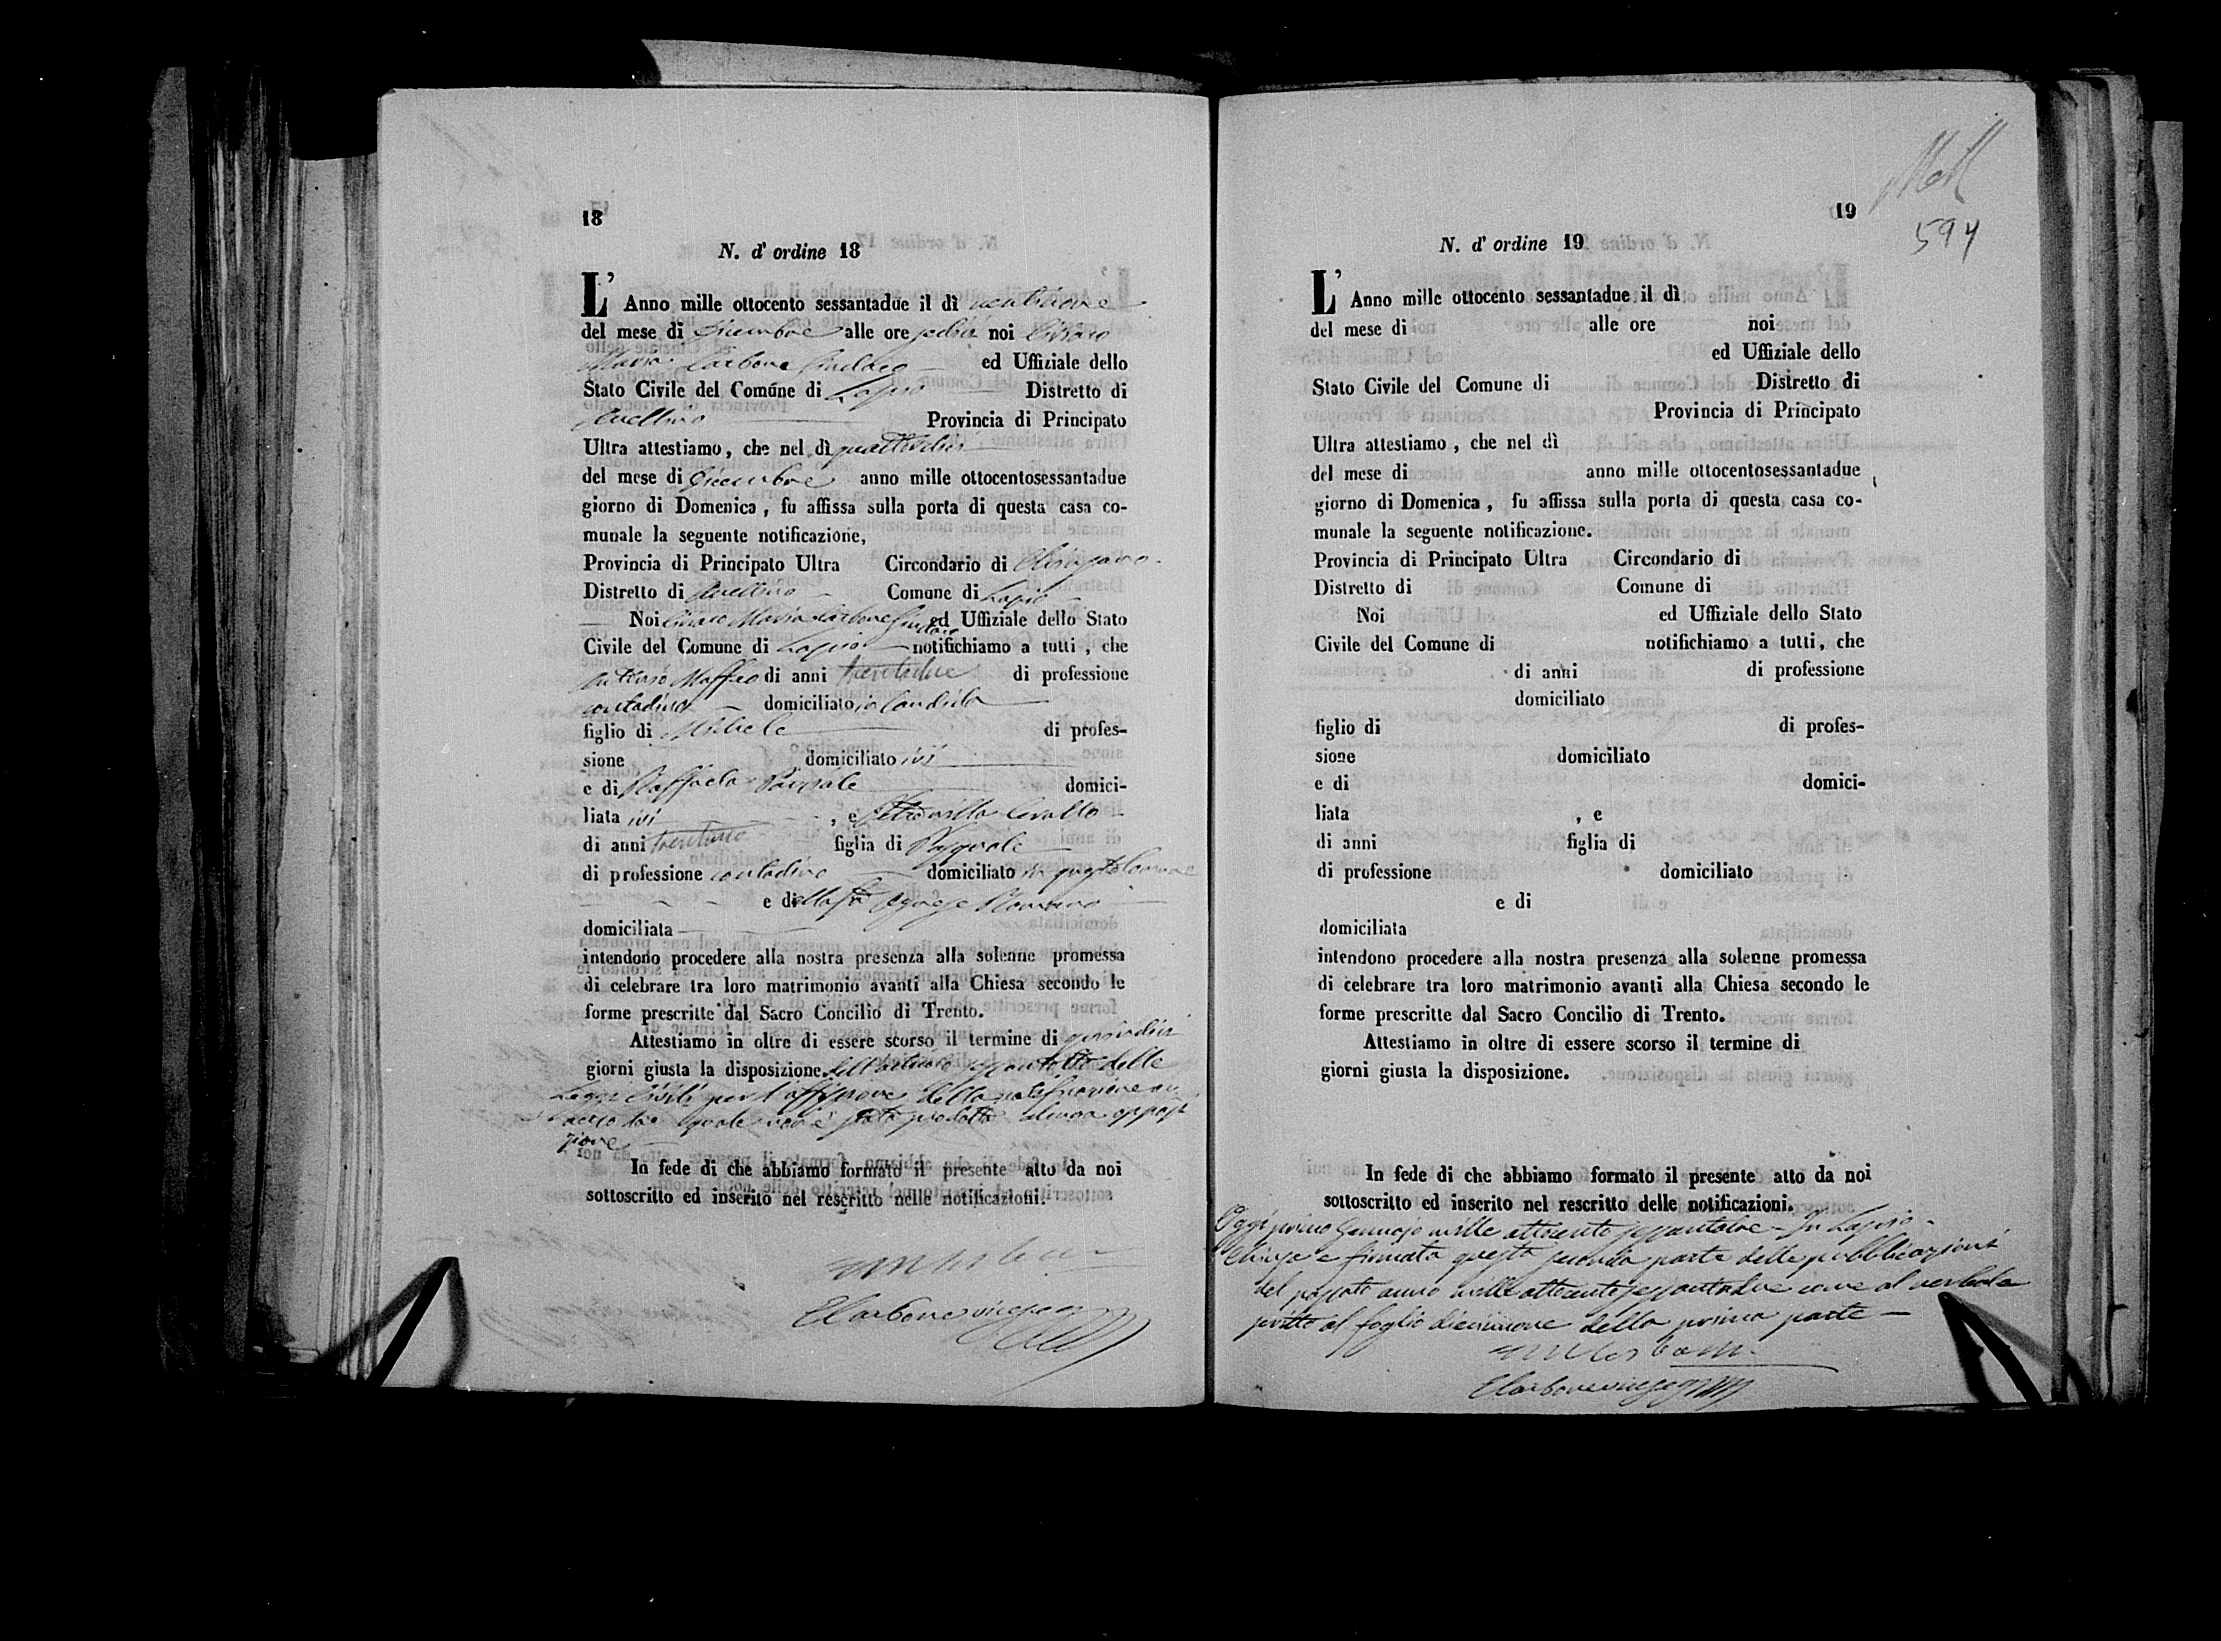 18
N. d' ordine 18
L' Anno mille ottocento sessantadue il dì ventinove
del mese di Dicembre alle ore sedici noi Ciriaco
Maria Carbone Sindaco ed Uffiziale dello
Stato Civile del Comune di Lapio Distretto di
Avellino Provincia di Principato
Ultra attestiamo, che nel dì quattordici
del mese di Dicembre anno mille ottocentosessantadue
giorno di Domenica, fu affissa sulla porta di questa casa co-
munale la seguente notificazione,
Provincia di Principato Ultra Circondario di Chiusano
Distretto di Avellino Comune di Lapio
Noi Ciriaco Maria Carbone Sindaco ed Uffiziale dello Stato
Civile del Comune di Lapio notifichiamo a tutti, che
Maffeo di anni trentadue di professione
contadino domiciliato in Candida
figlio di Michele di profes-
sione domiciliato ivi
e di Raffaela domici-
liata ivi , e Petronilla
di anni figlia di Pasquale
di professione contadino domiciliato in questo Comune
e di della fu Agnese Romano
domiciliata
intendono procedere alla nostra presenza alla solenne promessa
di celebrare tra loro matrimonio avanti alla Chiesa secondo le
forme prescritte dal Sacro Concilio di Trento.
Attestiamo in oltre di essere scorso il termine di quindici
giorni giusta la disposizione dell'articolo delle
Leggi Civili per l'affissione della notificazione
la quale non è stata prodotta alcuna opposi
zione
In fede di che abbiamo formato il presente atto da noi
sottoscritto ed inserito nel rescritto nelle notificazioni.
CCarbone
19
594
N. d' ordine 19
L' Anno mille ottocento sessantadue il dì
del mese di alle ore noi
ed Uffiziale dello
Stato Civile del Comune di Distretto di
Provincia di Principato
Ultra attestiamo, che nel dì
del mese di anno mille ottocentosessantadue
giorno di Domenica, fu affissa sulla porta di questa casa co-
munale la seguente notificazione.
Provincia di Principato Ultra Circondario di
Distretto di Comune di
Noi ed Uffiziale dello Stato
Civile del Comune di notifichiamo a tutti, che
di anni di professione
domiciliato
figlio di di profes-
sione domiciliato
e di domici-
liata , e
di anni figlia di
di professione domiciliato
e di
domiciliata
intendono procedere alla nostra presenza alla solenne promessa
di celebrare tra loro matrimonio avanti alla Chiesa secondo le
forme prescritte dal Sacro Concilio di Trento.
Attestiamo in oltre di essere scorso il termine di
giorni giusta la disposizione.
In fede di che abbiamo formato il presente atto da noi
sottoscritto ed inscrito nel rescritto delle notificazioni.
Oggi primo Gennajo mille ottocento sessantatre In Lapio
Chiusa e firmata questa seconda parte delle pubblicazioni
del passato anno mille ottocento sessantadue come al verbale
scritto al foglio diecinnove della prima parte
CCarbone